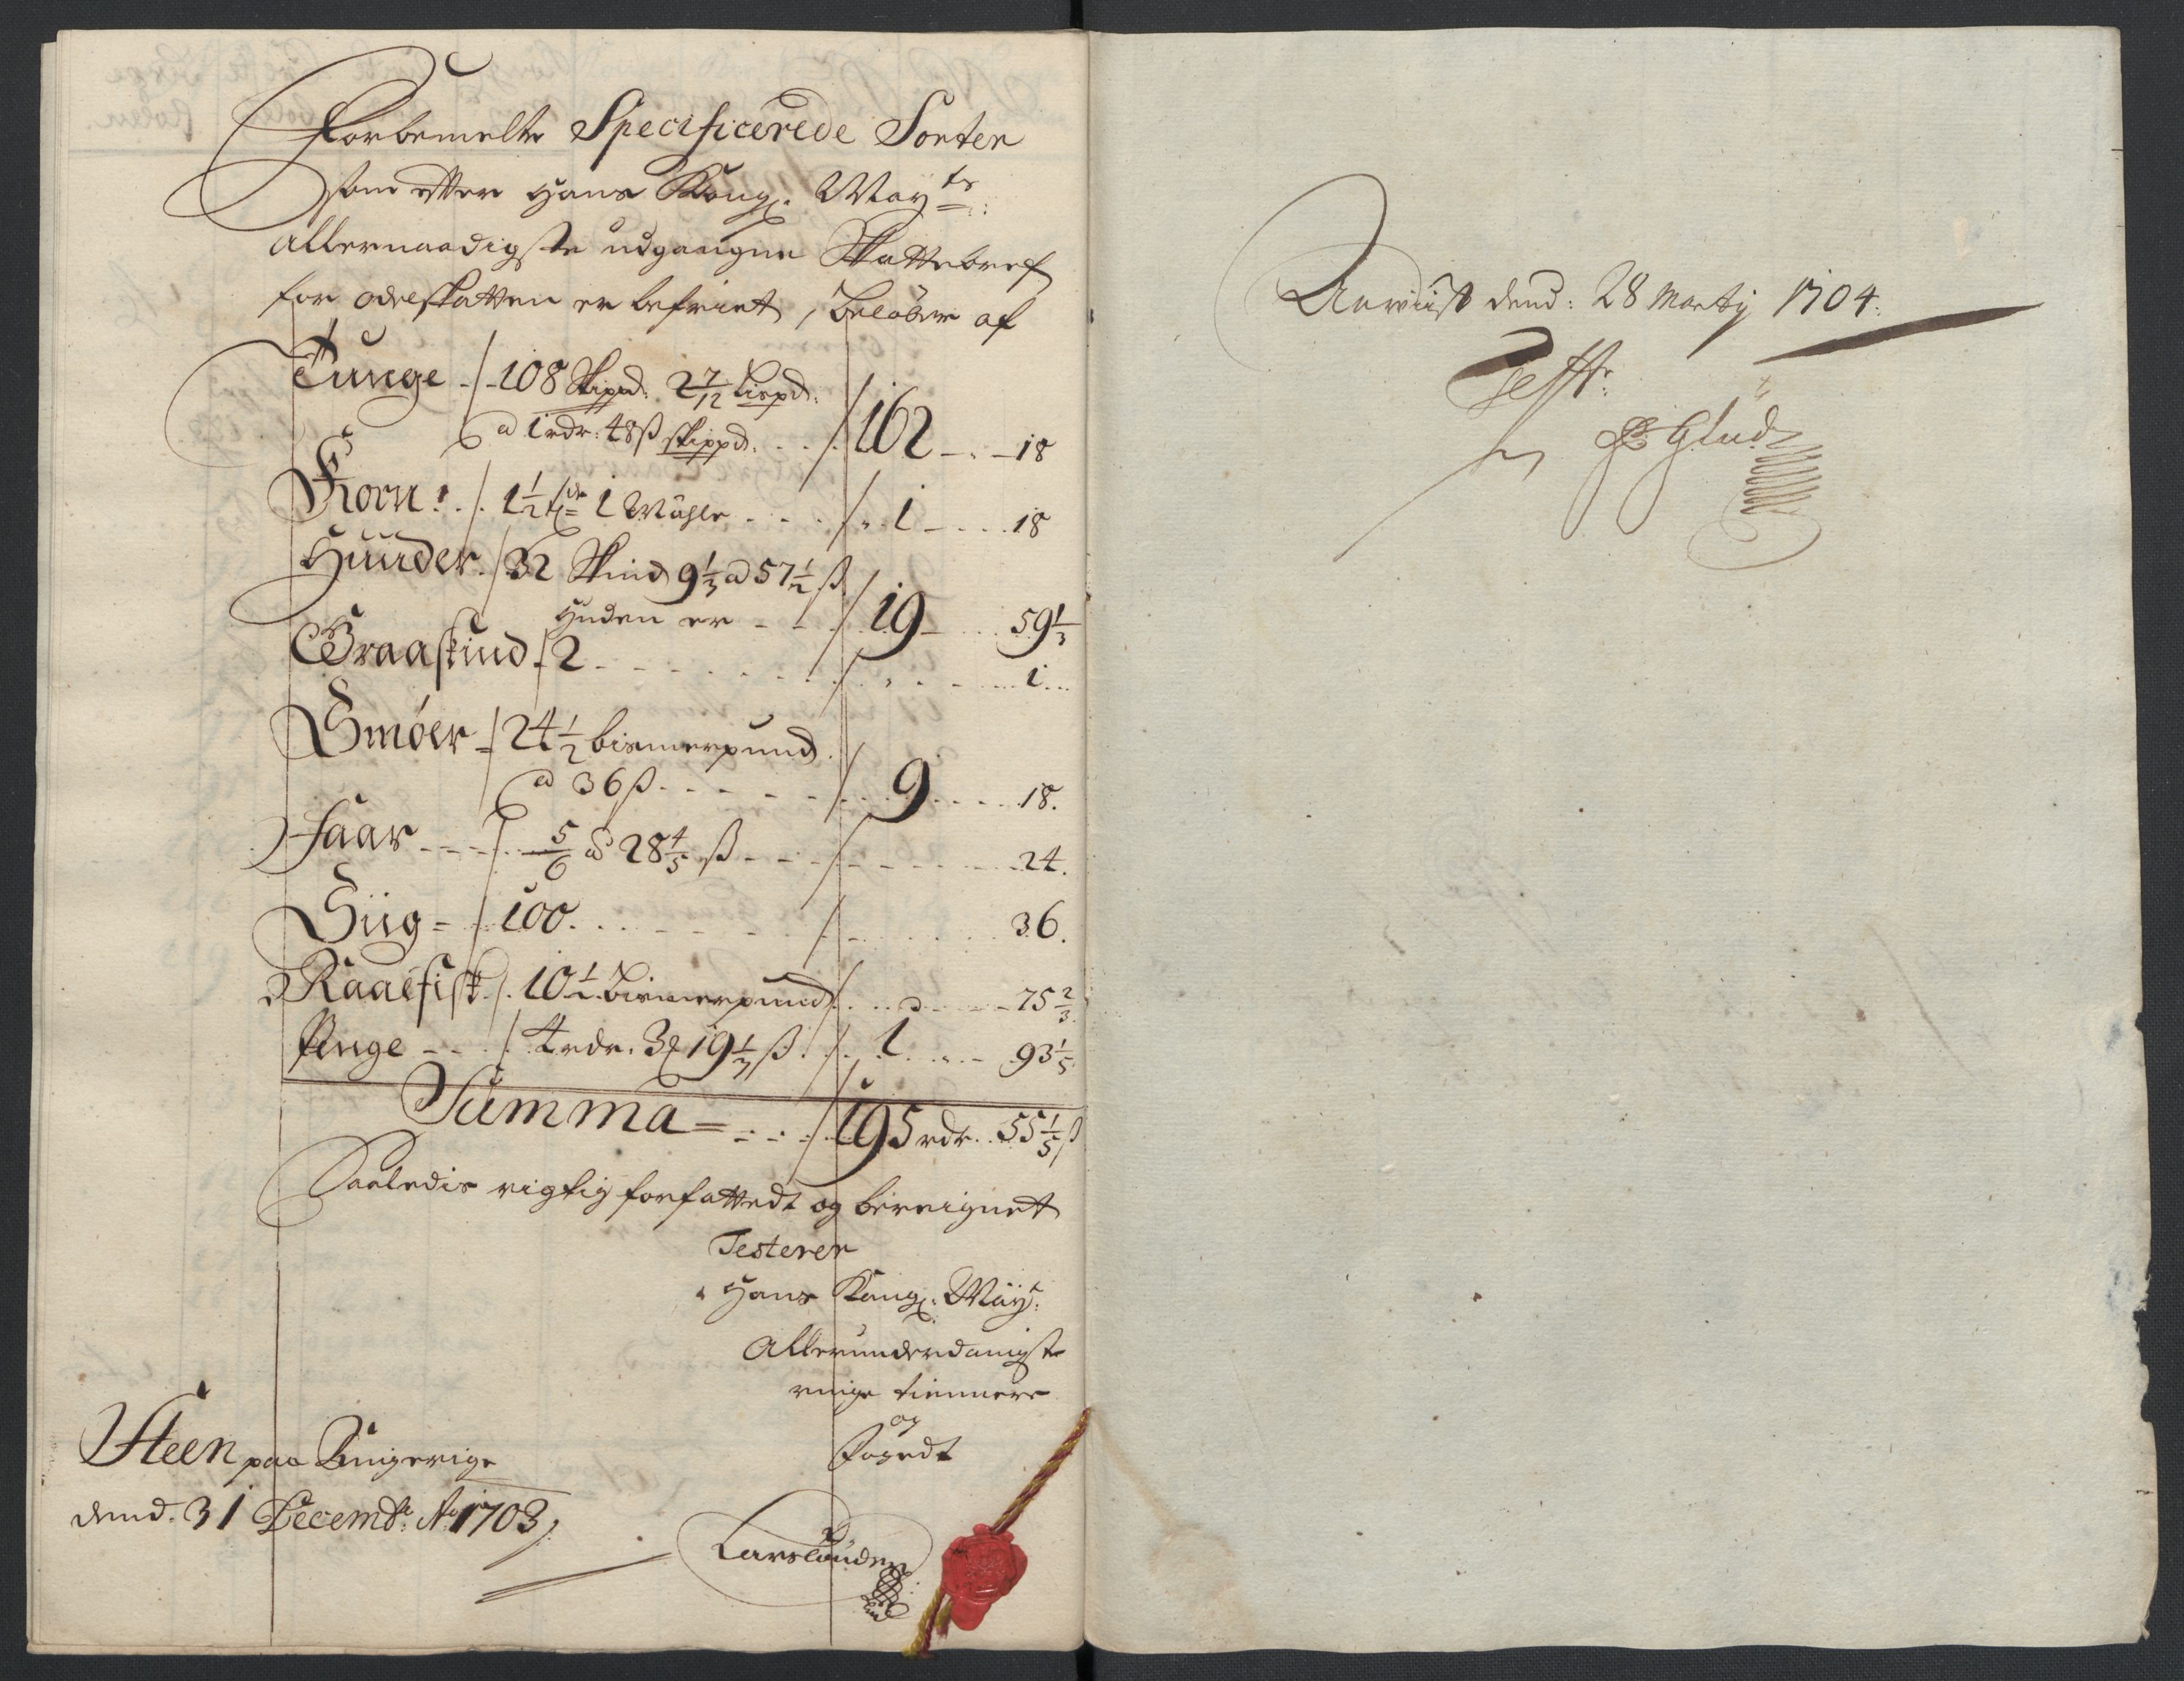 Forbemelte Specificerede Sorter
som efter Hans Kongl. Mayts:
allernaadigste udgangne Skattebref
for odelskatten er befriet, beløber af
Tunge - 108 Skippd: 2 7/12 Lispd:
a 1 rdr: 48 ß skippd. 162 - 18
Korn: 1 1/2 tdr 1 - 18
Huuder. 32 Skind 9 1/3 a 57 1/2 ß
Huden er - 19 - 59 1/3
Graaskind 2 - 1
Smöer - 24 1/2 bismerpund
a 36 ß - 9 - 18.
Faar - 5/6 a 28 4/5 ß - 24.
Siig - 100. - 36.
Raaefisk. 10 1/2 bismerpund - 75 2/3
Penge - 4 rdr. 3 19 1/3 ß. 1 - 93 1/5
Summa = 195 rdr. 55 1/5 ß
Saaledis rigtig forfattedt og bereignet
Testerer
Hans Kongl. May:
Allerunderdanigste
ringe tiennere
og
Fogedt
Steen paa Ringerige
dend. 31 Decembr: Ao 1703.
Lars
Anviist dend: 28 Martij 1704.
Glud